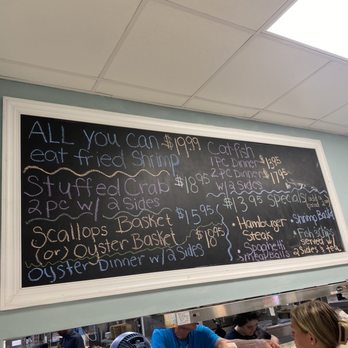 ALL You Can $19.99
eat fried shrimp
Stuffed Crab $18.95
2pc w/ 2 Sides
Scallops Basket $15.95
(or) Oyster Basket
Oyster Dinner w/2 Sides $18.95
Catfish
1 Pc Dinner $15.95
2 Pc Dinner $17.95
w/ 2 Sides
$13.95 Specials
• Hamburger
Steak
• Spaghetti
3 meatballs
• Shrimp
• Fish
served w/
2 Sides